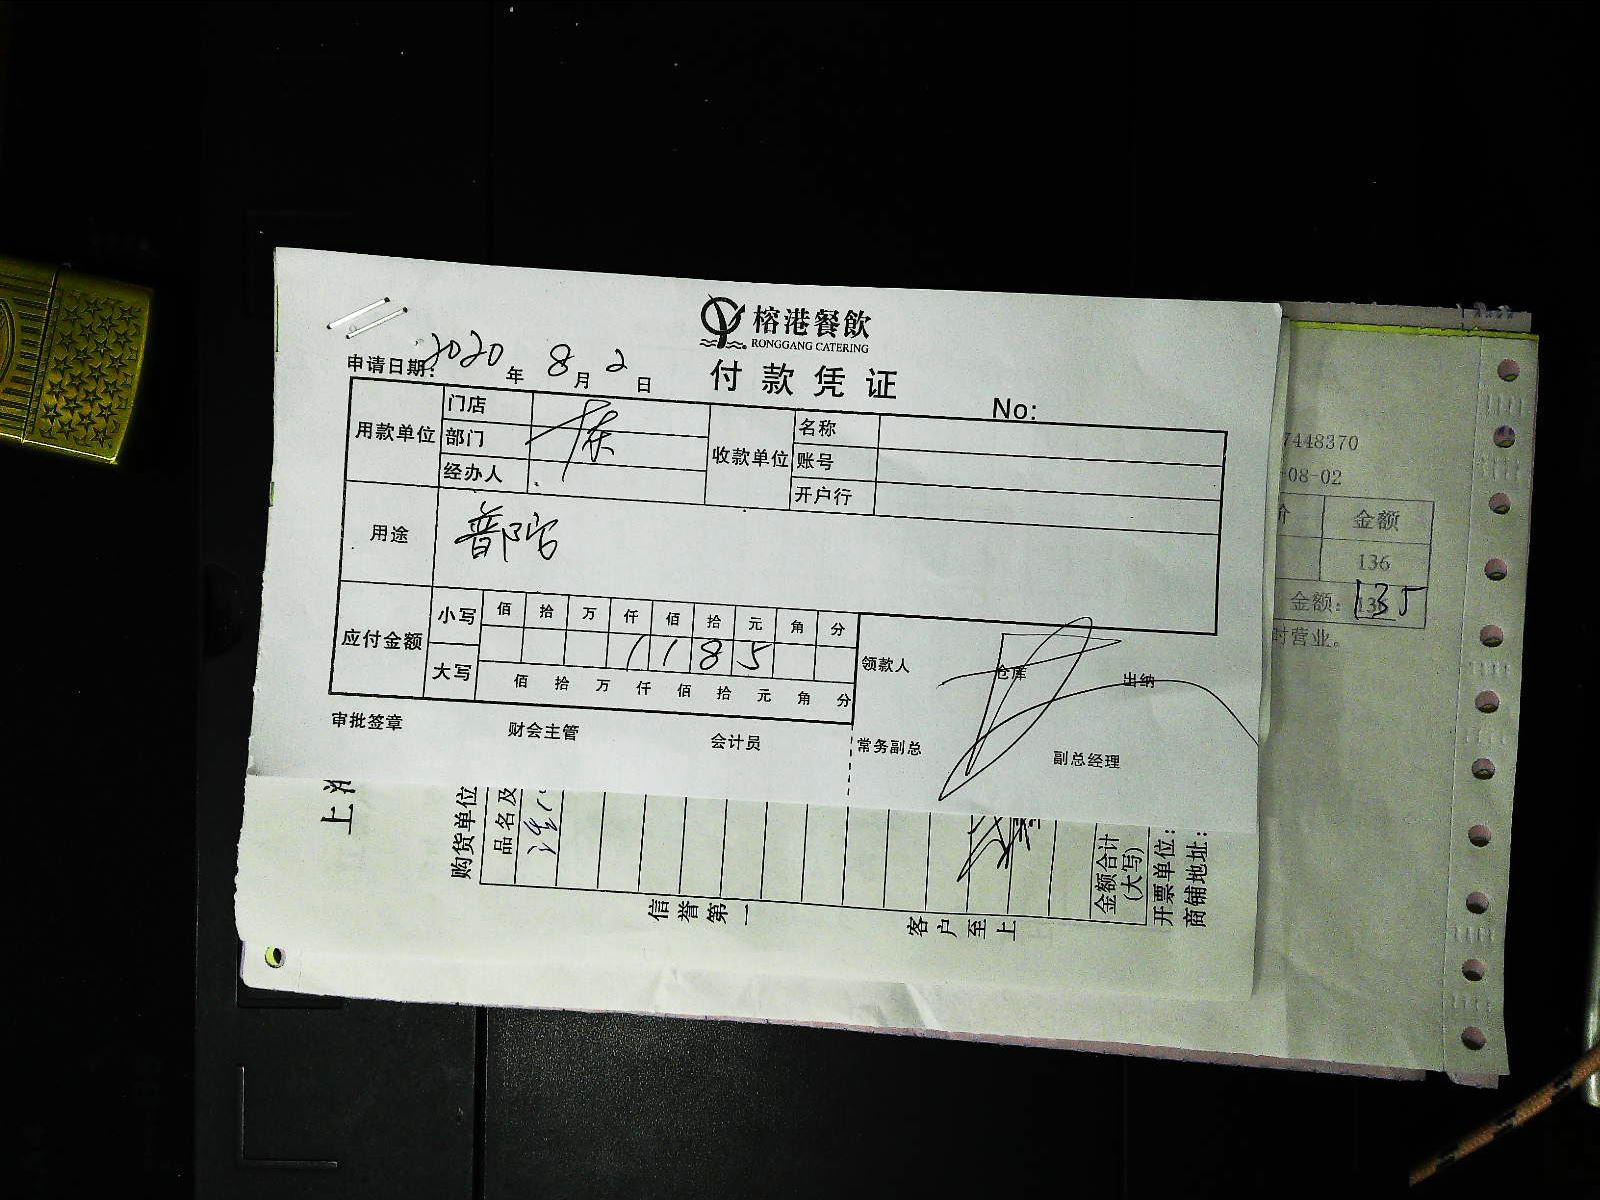 榕港餐飲
RONGGANG CATERING
付款凭证
申请日期: 2020 年 8 月 2 日
No:
用款单位 门店 收款单位 名称
部门 账号
经办人 开户行
用途
应付金额 小写 佰 拾 万 仟 佰 拾 元 角 分
1 1 8 5
大写 佰 拾 万 仟 佰 拾 元 角 分
领款人 仓库 出纳
审批签章 财会主管 会计员 常务副总 副总经理
7448370
-08-02
金额
136
金额: 135
时营业。
上
购货单位
品名及
信誉第一
客户至上
金额合计
(大写)
开票单位:
商铺地址: